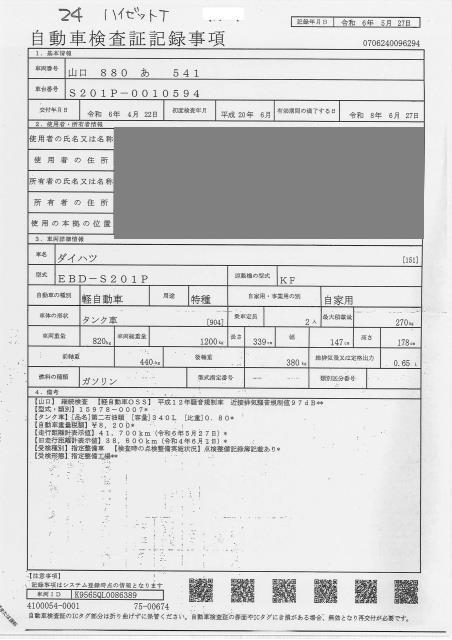 24 ハイゼットT
記録年月日 令和 6年 5月 27日
自動車検査証記録事項
0706240096294
1. 基本情報
車両番号 山口 880 あ 541
車台番号 S201P-0010594
交付年月日 令和 6年 4月 22日 初度検査年月 平成 20年 6月 有効期間の満了する日 令和 8年 6月 27日
2. 使用者・所有者情報
使用者の氏名又は名称
使用者の住所
所有者の氏名又は名称
所有者の住所
使用の本拠の位置
3. 車両詳細情報
車名 ダイハツ [151]
型式 EBD-S201P 原動機の型式 KF
自動車の種別 軽自動車 用途 特種 自家用・事業用の別 自家用
車体の形状 タンク車 [904] 乗車定員 2人 最大積載量 270kg
車両重量 820kg 車両総重量 1200kg 長さ 339cm 幅 147cm 高さ 178cm
前軸重 440kg 後軸重 380kg 総排気量又は定格出力 0.65L
燃料の種類 ガソリン 型式指定番号 類別区分番号
4. 備考
[山口] 継続検査 【軽自動車OSS】 平成12年騒音規制車 近接排気騒音規制値97dB**
[型式・類別]15978-0007*
[タンク車][品名]第二石油類 [容量]340L [比重]0.80*
[自動車重量税額]¥8,200*
[走行距離計表示値]41,700km(令和6年5月27日)*
[旧走行距離計表示値]38,600km(令和4年6月1日)*
[受検種別]指定整備車 [検査時の点検整備実施状況]点検整備記録簿記載あり*
[受検形態]指定整備工場**
[注意事項]
記録事項はシステム登録時点の情報となります
車両ID K9565QL0086389
4100054-0001 75-00674
自動車検査証のICタグ部分は折り曲げずに保管ください。自動車検査証の券面やICタグにき損がある場合、無効となり再交付が必要です。